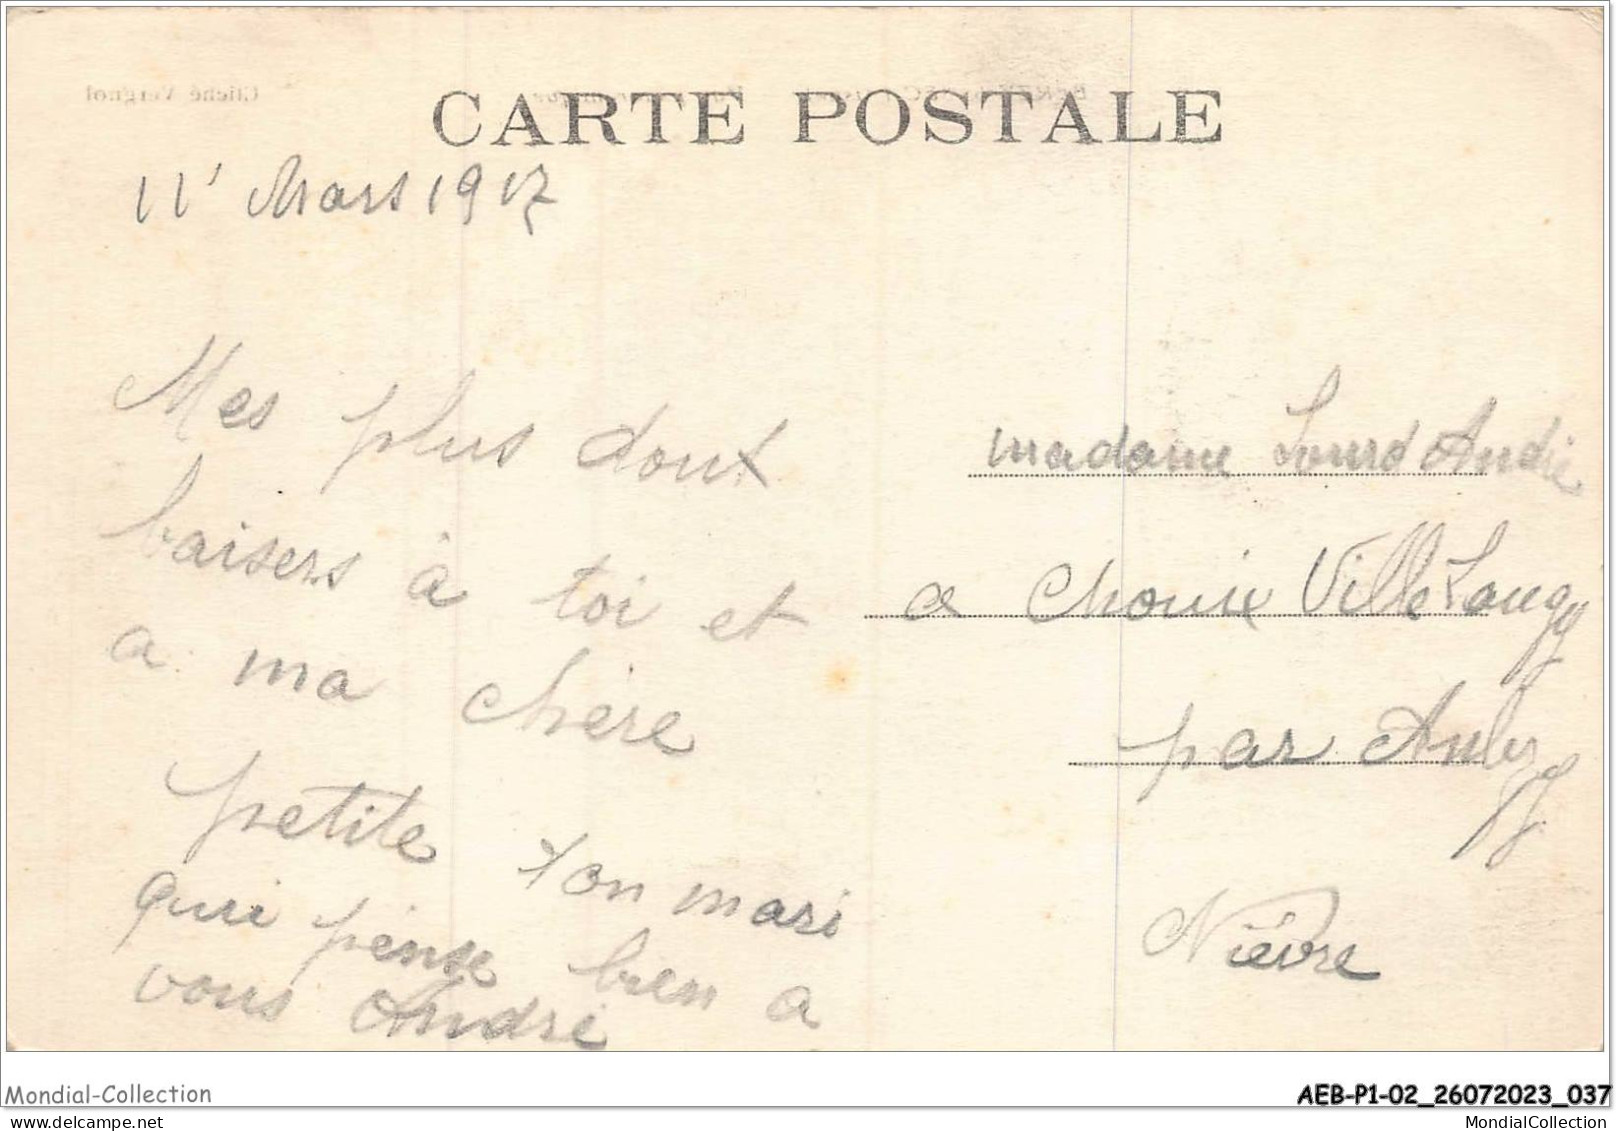 Cliché Vergnol
CARTE POSTALE
11' Mars 1917
Mes plus dout
baisers à toi et
a ma chère
petite ton mari
qui pense bien a
vous André
madame Lourd André
a Chouix Ville Langy
par Anlezy
Nièvre
Mondial-Collection
AEB-P1-02_26072023_037
MondialCollection